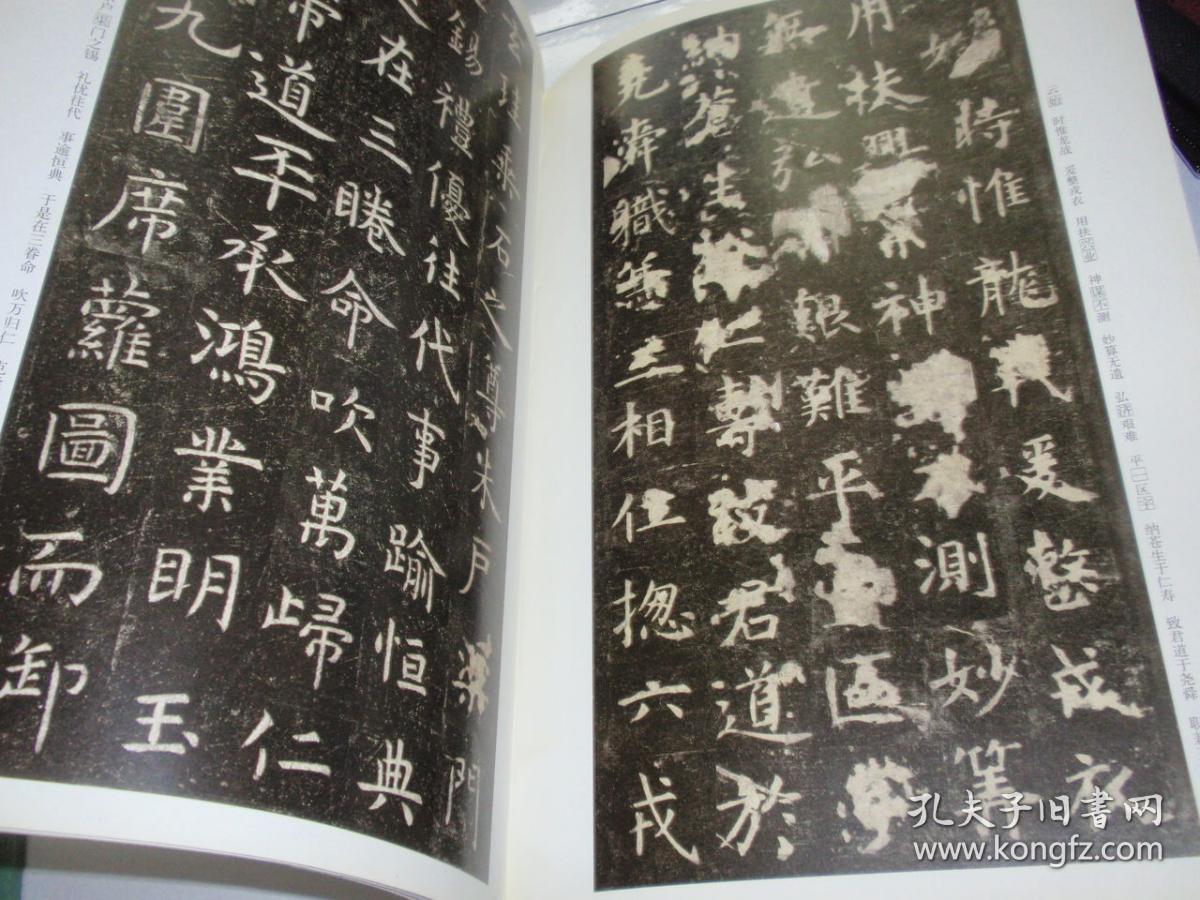 云始 时惟龙战 爰整戎衣 用扶兴业 神谋不测 妙算无遗 弘济艰难 平一区宇 纳苍生于仁寿 致君道于尧舜 职
時惟龍戰爰整戎衣
用扶興業神不測妙筭
無遺弘艱難平區宇
納蒼生於仁壽致君道於
堯舜職綰王相任揔六戎
玄珪乘石之尊朱戶渠門
錫禮優往代事踰恒典
在三睠命吹萬歸仁
帝道丕承鴻業明玉
九圍席蘿圖而御
户渠门之锡 礼优往代 事逾恒典 于是在三眷命 吹万归仁
孔夫子旧书网
www.kongfz.com